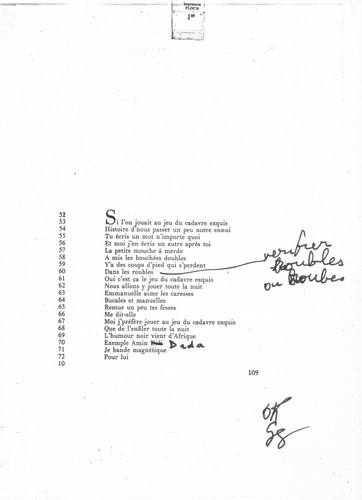 Imprimerie
FLOCH
1er
52
53 Si l'on jouait au jeu du cadavre exquis
54 Histoire d'nous passer un peu notre ennui
55 Tu écris un mot n'importe quoi
56 Et moi j'en écris un autre après toi
57 La petite mouche à merde
58 A mis les bouchées doubles
59 Y'a des coups d'pied qui s'perdent
60 Dans les roubles
61 Oui c'est ça le jeu du cadavre exquis
62 Nous allons y jouer toute la nuit
63 Emmanuelle aime les caresses
64 Bucales et manuelles
65 Remue un peu tes fesses
66 Me dit-elle
67 Moi j'préfère jouer au jeu du cadavre exquis
68 Que de l'enfiler toute la nuit
69 L'humour noir vient d'Afrique
70 Exemple Amin Dada
71 Je bande magnétique
72 Pour lui
10
verifier
Roubles
ou Roubes
109
OK
SG